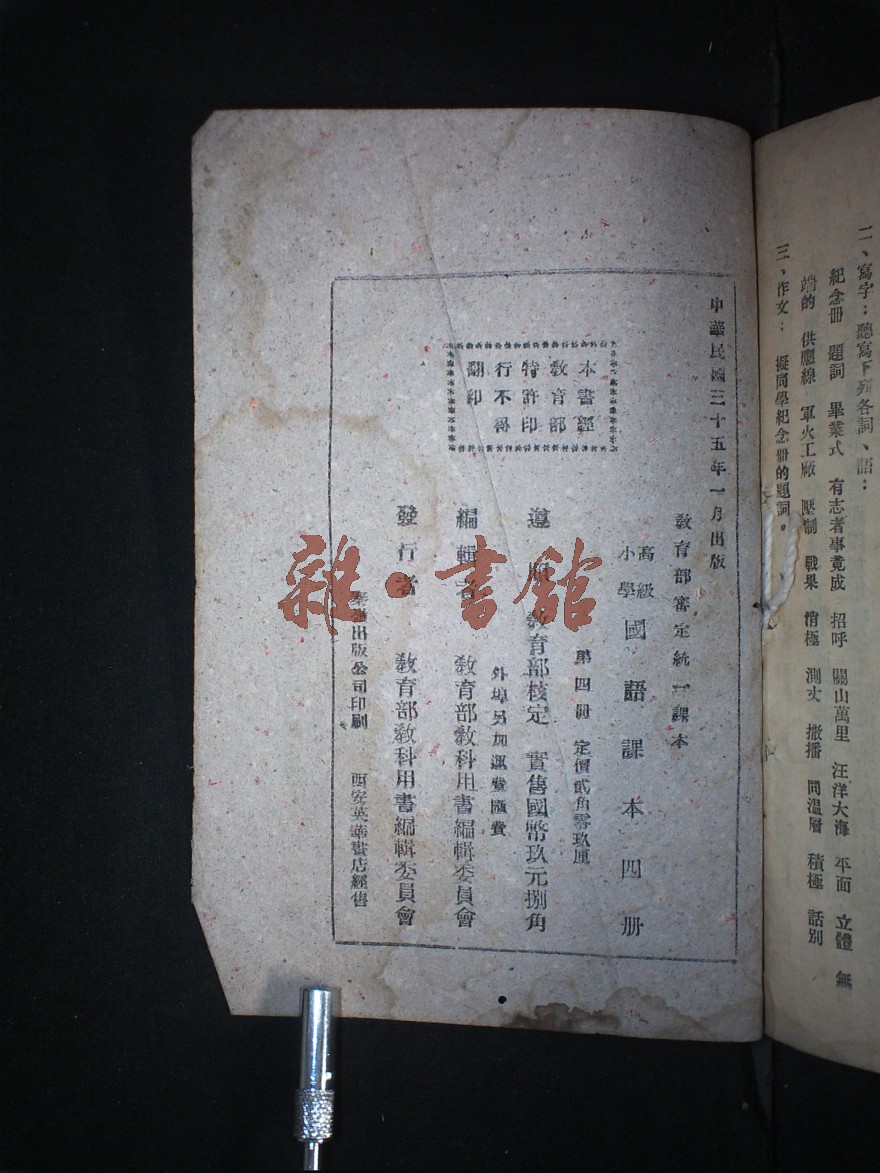 二、寫字:聽寫下列各詞、語:
紀念冊 題詞 畢業式 有志者事竟成 招呼 關山萬里 汪洋大海 平面 立體 無
端的 供應線 軍火工廠 壓制 戰果 消極 測丈 撒播 同溫層 積極 話別
三、作文:擬同學紀念冊的題詞。
中華民國三十五年一月出版
教育部審定統一課本
高級小學 國語課本四册
第四冊 定價貳角零玖厘
遵照教育部核定 實售國幣玖元捌角
外埠另加運費匯費
編輯者 教育部教科用書編輯委員會
發行者 教育部教科用書編輯委員會
出版公司印刷 西安英華書店經售
本書經
教育部
特許印
行不得
翻印
雜·書館